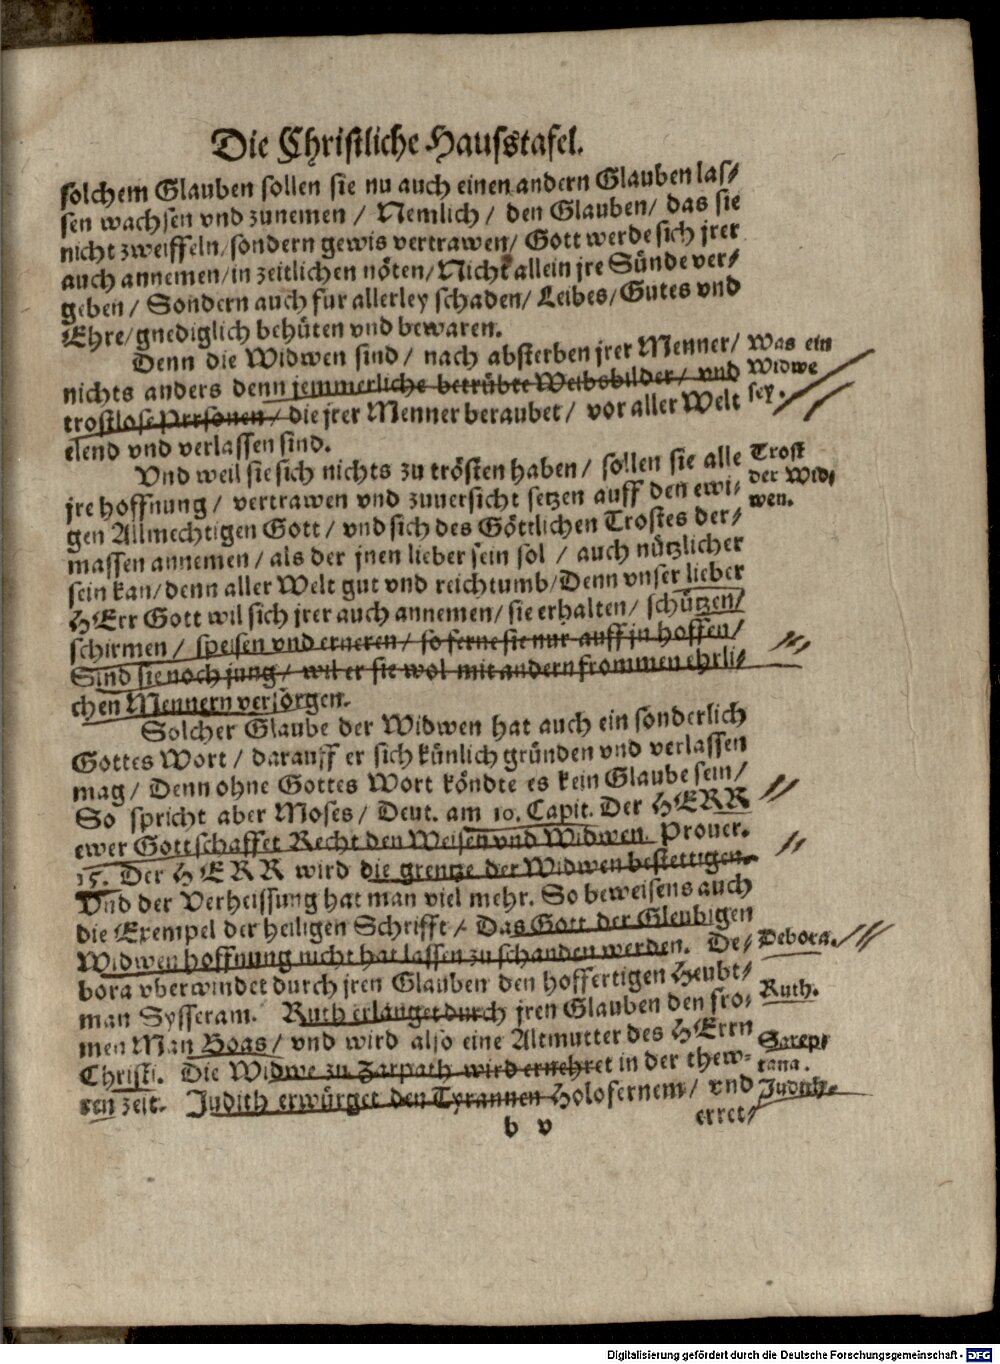 Die Christliche Hausstafel.
solchem Glauben sollen sie nu auch einen andern Glauben las/
sen wachsen vnd zunemen / Nemlich / den Glauben / das sie
nicht zweiffeln / sondern gewis vertrawen / Gott werde sich jrer
auch annemen / in zeitlichen nöten / Nicht allein jre Sünde ver/
geben / Sondern auch fur allerley schaden / Leibes / Gutes vnd
Ehre / gnediglich behüten vnd bewaren.
Denn die Widwen sind / nach absterben jrer Menner /
Was ein
nichts anders denn jemmerliche betrübte Weibsbilder / vnd
Widwe
trostlose Personen / die jrer Menner beraubet / vor aller Welt
sey.
elend vnd verlassen sind.
Vnd weil sie sich nichts zu trösten haben / sollen sie alle
Trost
jre hoffnung / vertrawen vnd zuuersicht setzen auff den ewi/
der Wid/
gen Allmechtigen Gott / vnd sich des Göttlichen Trostes der/
wen.
massen annemen / als der jnen lieber sein sol / auch nützlicher
sein kan / denn aller Welt gut vnd reichtumb / Denn vnser lieber
HErr Gott wil sich jrer auch annemen / sie erhalten / schützen /
schirmen / speisen vnd erneren / so ferne sie nur auff jn hoffen /
Sind sie noch jung / wil er sie wol mit andern frommen ehrli/
chen Mennern versorgen.
Solcher Glaube der Widwen hat auch ein sonderlich
Gottes Wort / darauff er sich künlich gründen vnd verlassen
mag / Denn ohne Gottes Wort köndte es kein Glaube sein /
So spricht aber Moses / Deut. am 10. Capit. Der HERR
ewer Gott schaffet Recht den Weisen vnd Widwen. Prouer.
15. Der HERR wird die grentze der Widwen bestettigen.
Vnd der Verheissung hat man viel mehr. So beweisens auch
die Exempel der heiligen Schrifft / Das Gott der Gleubigen
Widwen hoffnung nicht hat lassen zu schanden werden. De/
Debora.
bora vberwindet durch jren Glauben den hoffertigen Heubt/
man Sysseram. Ruth erlanget durch jren Glauben den fro/
Ruth.
men Man Boas / vnd wird also eine Altmutter des HErrn
Christi. Die Widwe zu Zarpath wird ernehret in der thew/
Sarep/
tana.
ren zeit. Judith erwürget den Tyrannen Holofernem / vnd
Judith.
b v
erret/
Digitalisierung gefördert durch die Deutsche Forschungsgemeinschaft - DFG